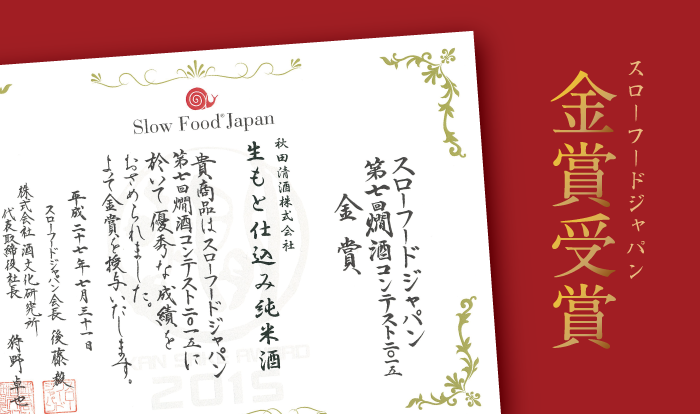 スローフードジャパン
金賞受賞
Slow Food® Japan
スローフードジャパン
第七回燗酒コンテスト二〇一五
金賞
秋田清酒株式会社
生もと仕込み純米酒
貴商品はスローフードジャパン
第七回燗酒コンテスト二〇一五に
於いて優秀な成績を
おさめられました。
よって金賞を授与いたします。
平成二十七年七月三十一日
スローフードジャパン会長 後藤毅
株式会社酒文化研究所
代表取締役社長 狩野卓也
2015